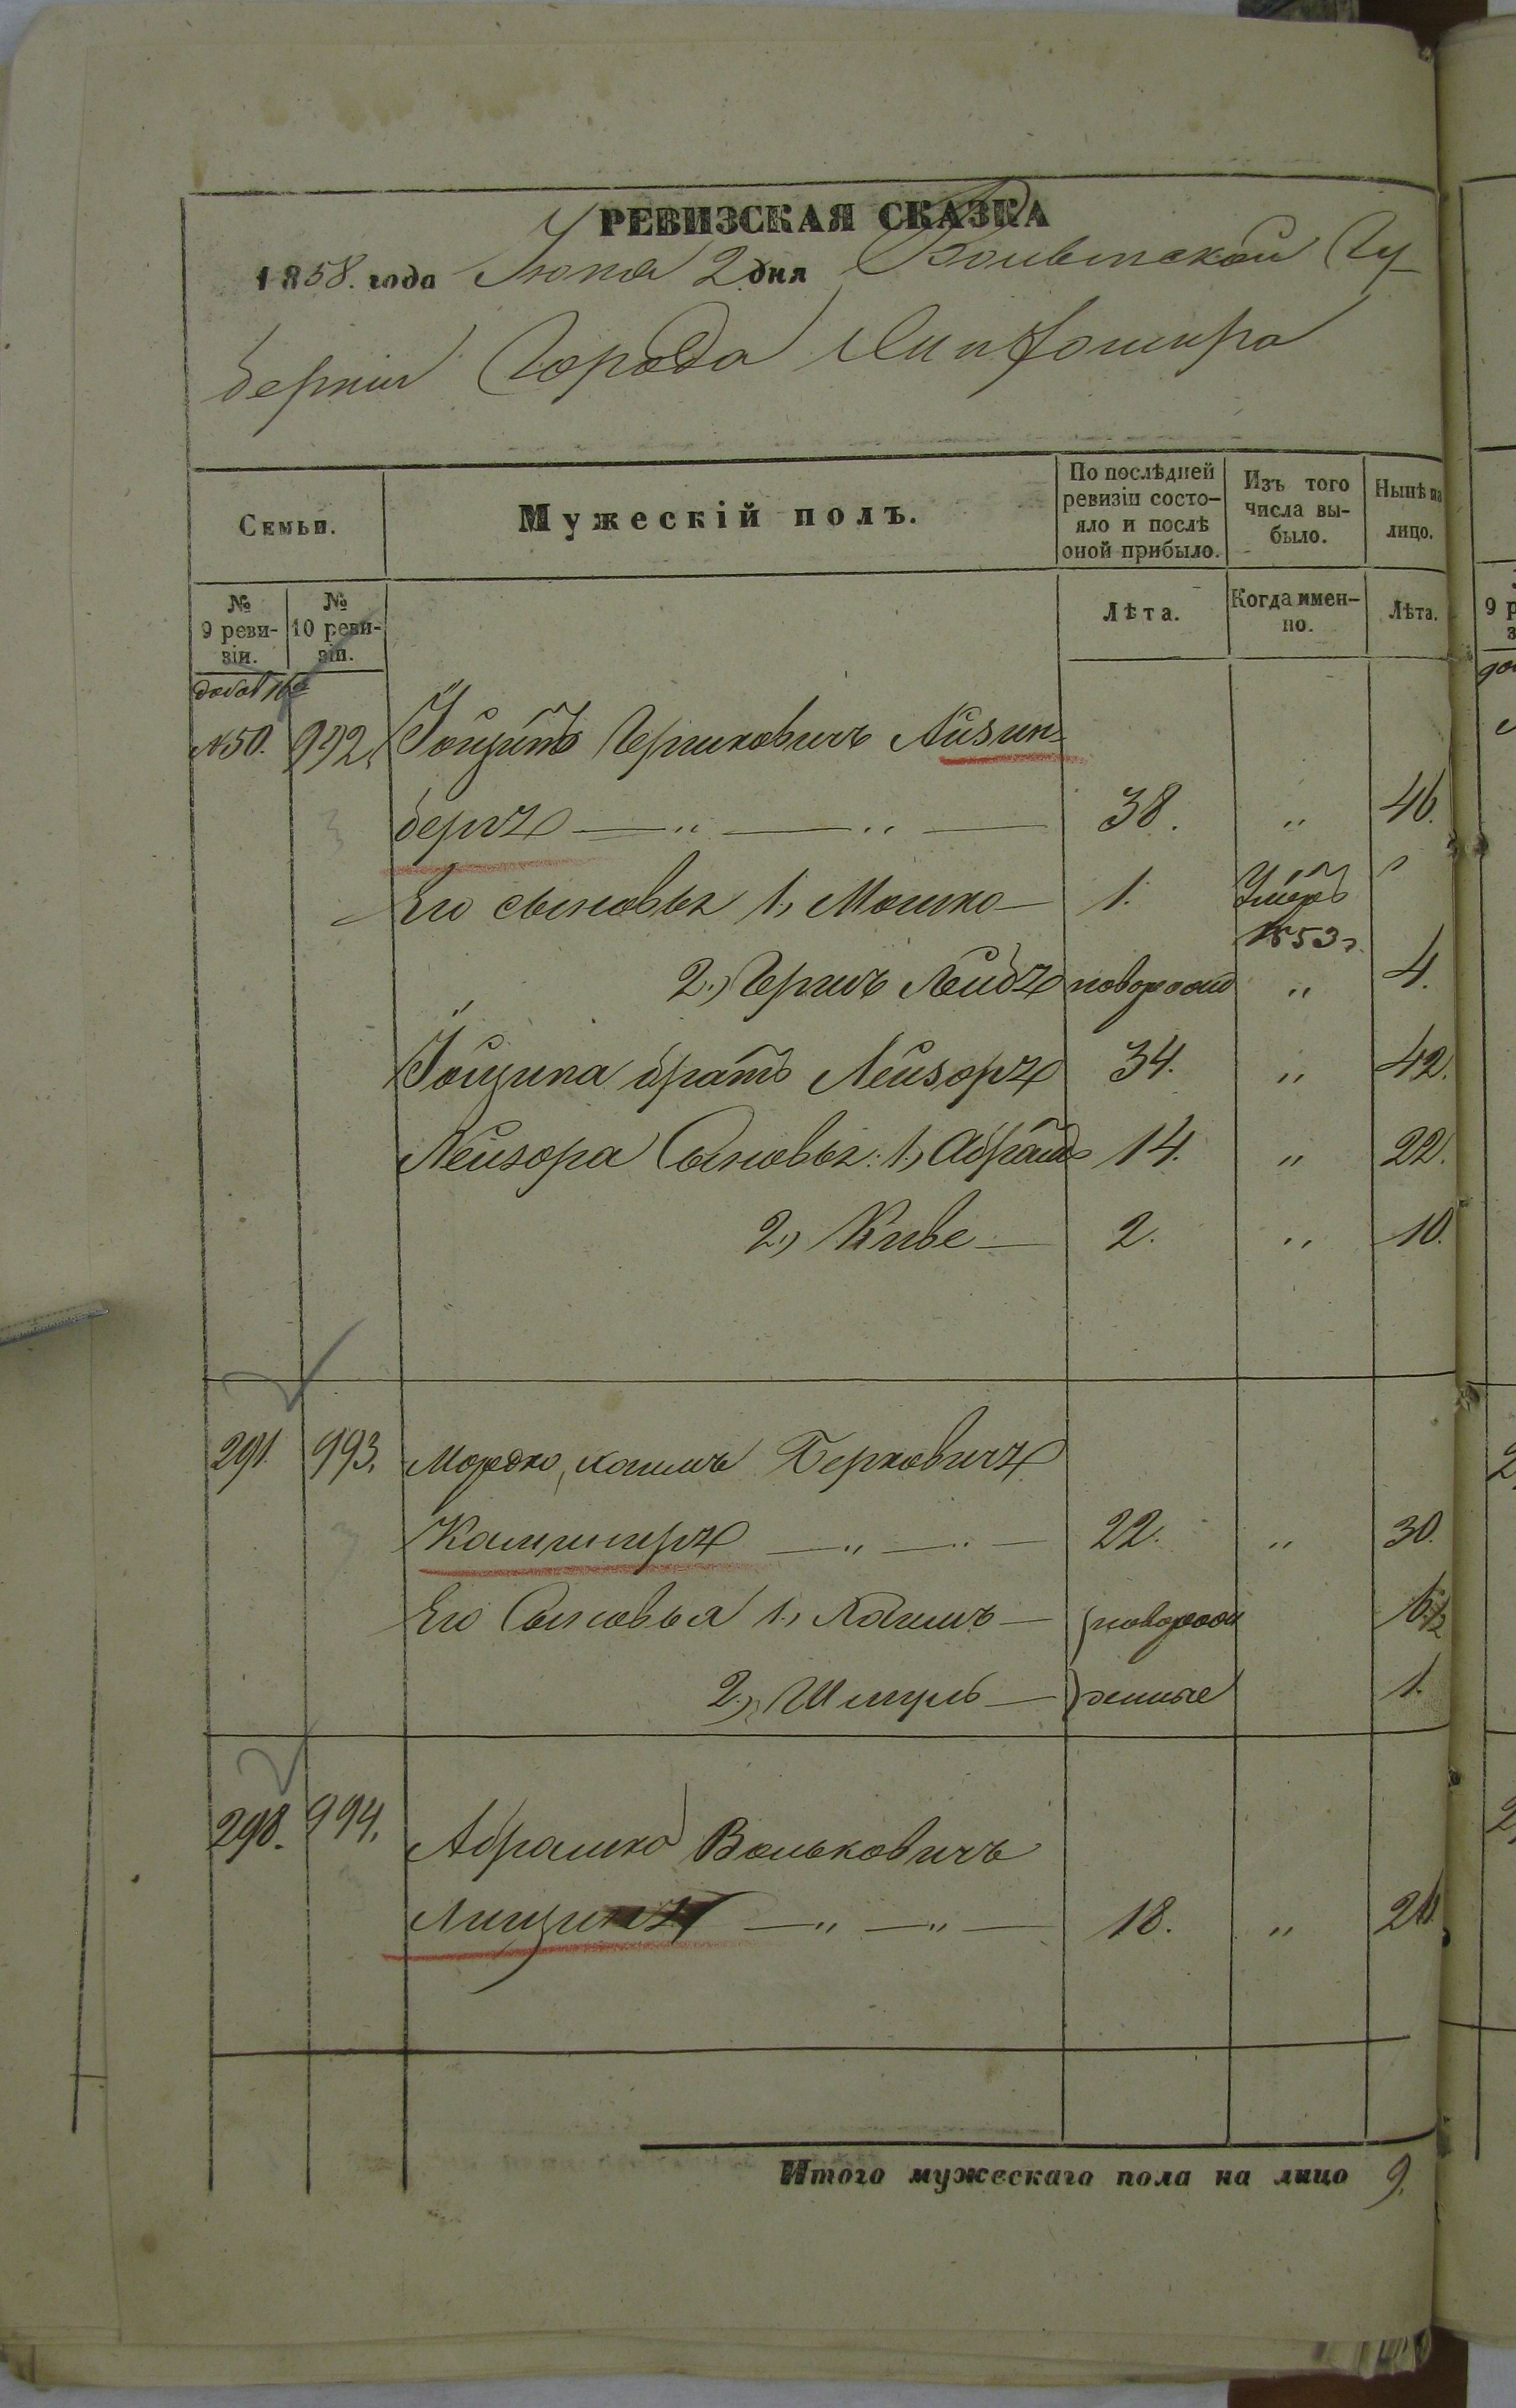 РЕВИЗСКАЯ СКАЗКА
1858. года Июня 2 дня Волынской Гу-
берніи Города Житомира
Семьи.
Мужескій полъ.
По послѣдней ревизіи состо-яло и послѣ оной прибыло.
Изъ того числа вы-было.
Нынѣ на лицо.
№ 9 реви-зіи.
№ 10 реви-зіи.
Лѣта.
Когда имен-но.
Лѣта.
№50. 992. Гершковичъ Айзин-
бергъ — „ — „ — 38. „ 46.
Его сыновья 1, Мошко — 1. Умеръ 1853 г.
2.) Гершъ Лейбъ новорожд „ 4.
братъ Лейзоръ 34. „ 42.
Лейзора Сыновья: 1, Абрамъ 14. „ 22.
2.) Киве — 2. „ 10.
291. 993. Мордко Берковичъ
— „ — „ — 22. „ 30.
Его Сыновья 1., новорож
2.) Шмуль — денные 1.
298. 994. Абрамко Вольковичъ
— „ — „ — 18. „
Итого мужескаго пола на лицо 9.